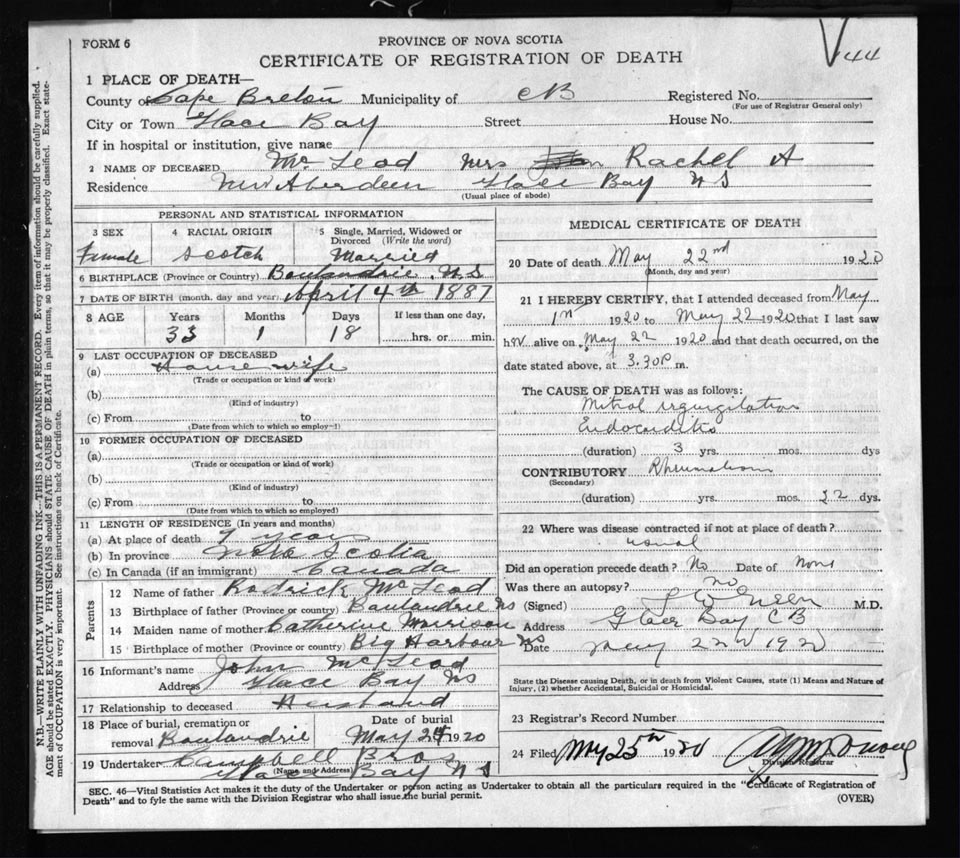 FORM 6
PROVINCE OF NOVA SCOTIA
CERTIFICATE OF REGISTRATION OF DEATH
44
1 PLACE OF DEATH—
County of Cape Breton Municipality of CB Registered No.
(For use of Registrar General only)
City or Town Glace Bay Street House No.
If in hospital or institution, give name
2 NAME OF DECEASED Mc Leod Mrs Rachel A
Residence New Aberdeen Glace Bay NS
(Usual place of abode)
PERSONAL AND STATISTICAL INFORMATION
3 SEX Female
4 RACIAL ORIGIN Scotch
5 Single, Married, Widowed or Divorced (Write the word) Married
6 BIRTHPLACE (Province or Country) Boulandrie N.S
7 DATE OF BIRTH (month, day and year) April 4th 1887
8 AGE Years Months Days If less than one day,
33 1 18 hrs. or min.
9 LAST OCCUPATION OF DECEASED
(a) House wife
(Trade or occupation or kind of work)
(b)
(Kind of industry)
(c) From to
(Date from which to which so empl-)
10 FORMER OCCUPATION OF DECEASED
(a)
(Trade or occupation or kind of work)
(b)
(Kind of industry)
(c) From to
(Date from which to which so employed)
11 LENGTH OF RESIDENCE (In years and months)
(a) At place of death 7 years
(b) In province Nova Scotia
(c) In Canada (if an immigrant) Canada
Parents
12 Name of father Rodrick McLeod
13 Birthplace of father (Province or country) Boulandrie NS
14 Maiden name of mother Catherine Morrison
15 Birthplace of mother (Province or Country) Big Harbour NS
16 Informant's name John McLeod
Address Glace Bay NS
17 Relationship to deceased Husband
18 Place of burial, cremation or removal Boulandrie
Date of burial May 24 1920
19 Undertaker Campbell Bros
(Name and Address) Glace Bay N S
MEDICAL CERTIFICATE OF DEATH
20 Date of death May 22nd 1920
(Month, day and year)
21 I HEREBY CERTIFY, that I attended deceased from May
1920 to May 22 1920 that I last saw
her alive on May 22 1920 and that death occurred, on the
date stated above, at 3.30P m.
The CAUSE OF DEATH was as follows:
Mitral regurgitation
Endocarditis
(duration) 3 yrs. mos. dys
CONTRIBUTORY Rheumatism
(Secondary)
(duration) yrs. mos. 22 dys.
22 Where was disease contracted if not at place of death?
usual
Did an operation precede death? No Date of None
Was there an autopsy? no
(Signed) M.D.
Address Glace Bay CB
Date May 22nd 1920
State the Disease causing Death, or in Death from Violent Causes, state (1) Means and Nature of
Injury, (2) whether Accidental, Suicidal or Homicidal.
23 Registrar's Record Number
24 Filed May 25th 1920
Division Registrar
SEC. 46—Vital Statistics Act makes it the duty of the Undertaker or person acting as Undertaker to obtain all the particulars required in the "Certificate of Registration of
Death" and to fyle the same with the Division Registrar who shall issue the burial permit.
(OVER)
N.B.—WRITE PLAINLY WITH UNFADING INK—THIS IS A PERMANENT RECORD. Every item of information should be carefully supplied.
AGE should be stated EXACTLY. PHYSICIANS should STATE CAUSE OF DEATH in plain terms, so that it may be properly classified. Exact statement of OCCUPATION is very important. See instructions on back of Certificate.